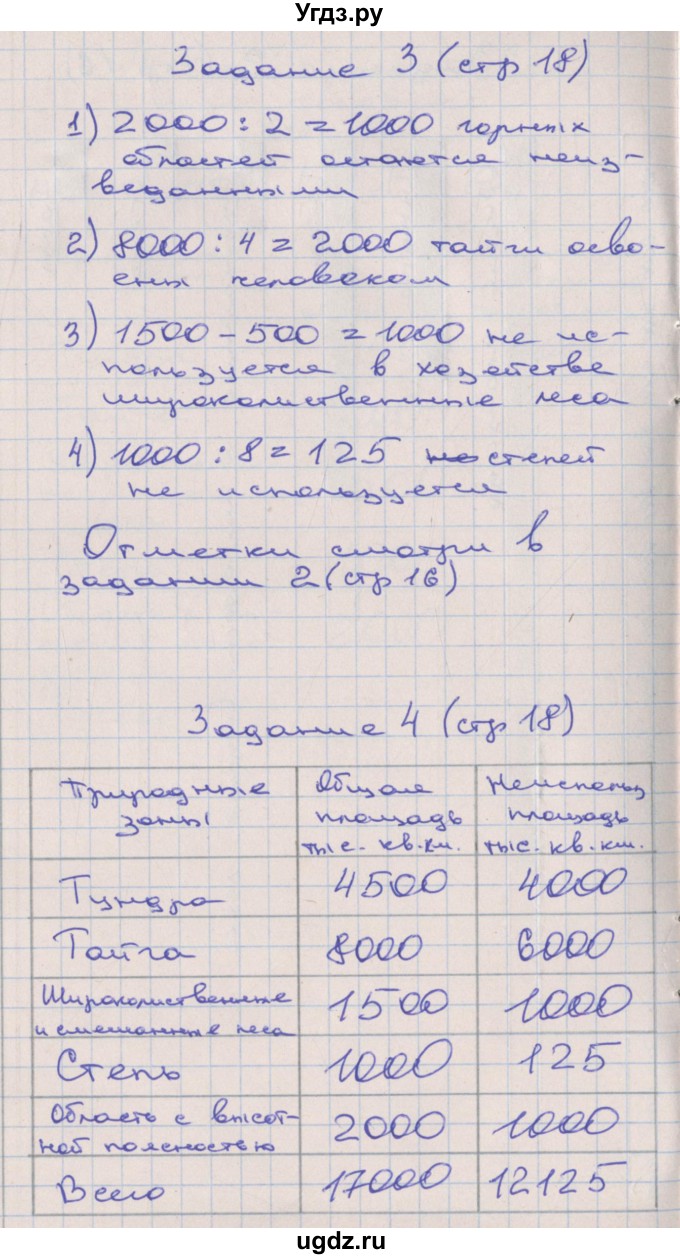 Угдз.ру
Задание 3 (стр 18)
1) 2000 : 2 = 1000 горных
областей остаются неиз-
веданными
2) 8000 : 4 = 2000 тайги осво-
ены человеком
3) 1500 - 500 = 1000 не ис-
пользуется в хозяйстве
широколиственные леса
4) 1000 : 8 = 125 степей
не используется
Отметки смотри в
задании 2 (стр 16)
Задание 4 (стр 18)
Природные зоны Общая площадь тыс. кв. км. Неиспольз площадь тыс. кв. км.
Тундра 4500 4000
Тайга 8000 6000
Широколиственные и смешанные леса 1500 1000
Степь 1000 125
Область с высот-ной поясностью 2000 1000
Всего 17000 12125
ugdz.ru